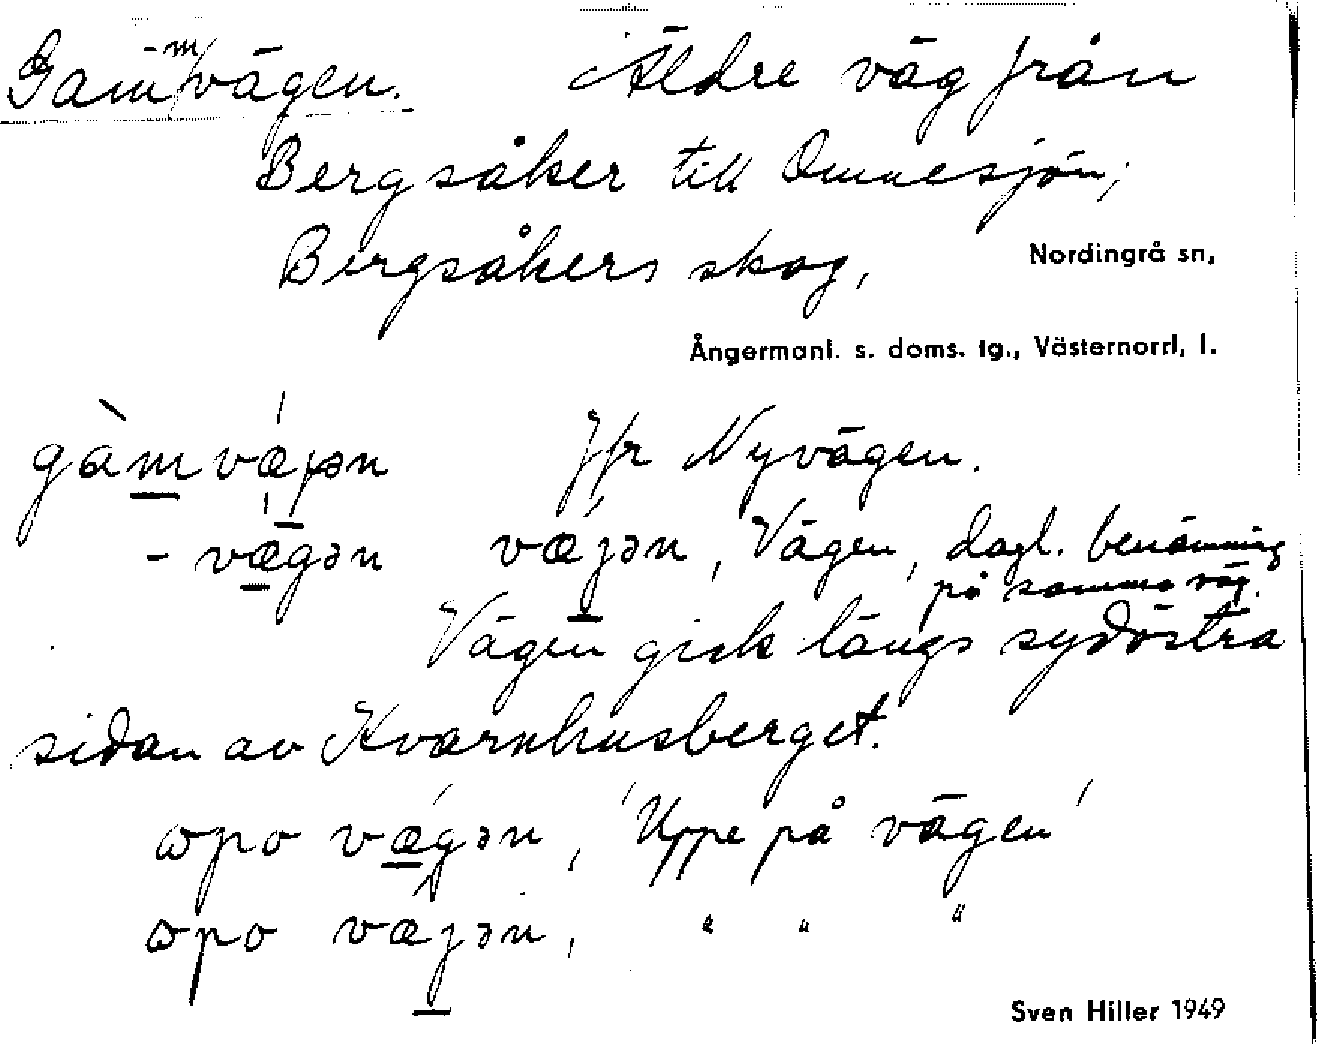 -m
Gam/vägen. Äldre väg från
Bergsåker till Omnesjön,
Bergsåkers skog, Nordingrå sn,
Ångermanl. s. doms. tg., Västernorrl, l.
gàmvæjən Jfr Nyvägen.
- vægən væjən, Vägen, dagl. benämning
på samma väg.
Vägen gick längs sydöstra
sidan av Kvarnhusberget.
ωpo vægən, 'Uppe på vägen'
ωpo væjən, " " "
Sven Hiller 1949